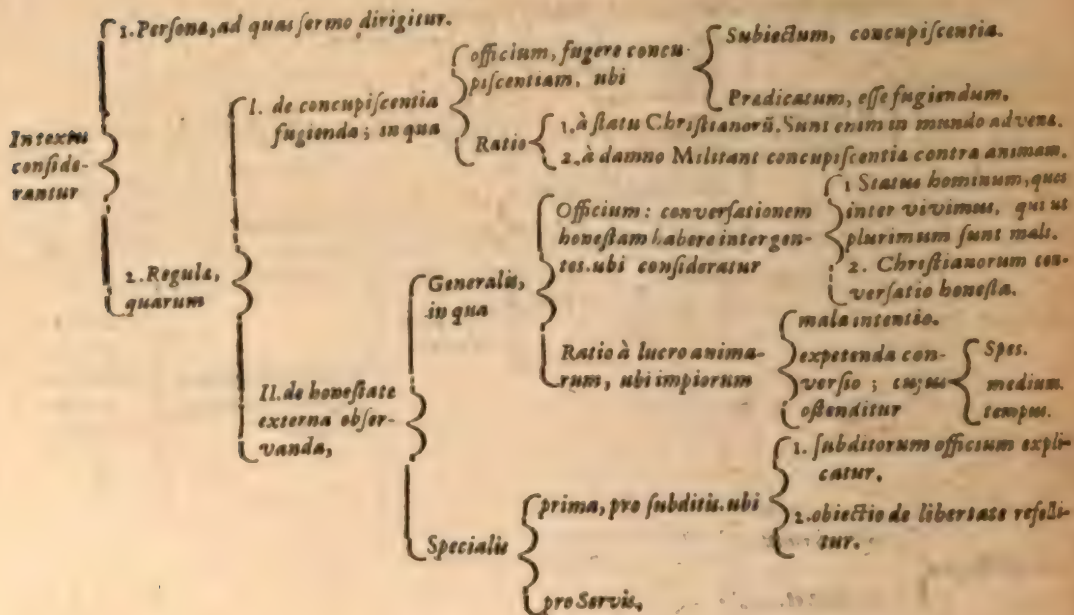 1. Persona, ad quas sermo dirigitur.
In textu
conside-
rantur
2. Regula,
quarum
I. de concupiscentia
fugienda; in qua
officium, fugere concu-
piscentiam, ubi
Subiectum, concupiscentia.
Predicatum, esse fugiendum.
Ratio
1. à statu Christianorũ. Sunt enim in mundo advena.
2. à damno Militant concupiscentia contra animam.
II. de honestate
externa obser-
vanda,
Generalis,
in qua
Officium: conversationem
honestam habere inter gen-
tes. ubi consideratur
1 Status hominum, quos
inter vivimus, qui ut
plurimum sunt mali.
2. Christianorum con-
versatio honesta.
Ratio à lucro anima-
rum, ubi impiorum
mala intentio.
expetenda con-
versio; cujus
ostenditur
Spes.
medium.
tempus.
Specialis
prima, pro subditis. ubi
1. subditorum officium expli-
catur.
2. obiectio de libertate refelli-
tur.
pro Servis,